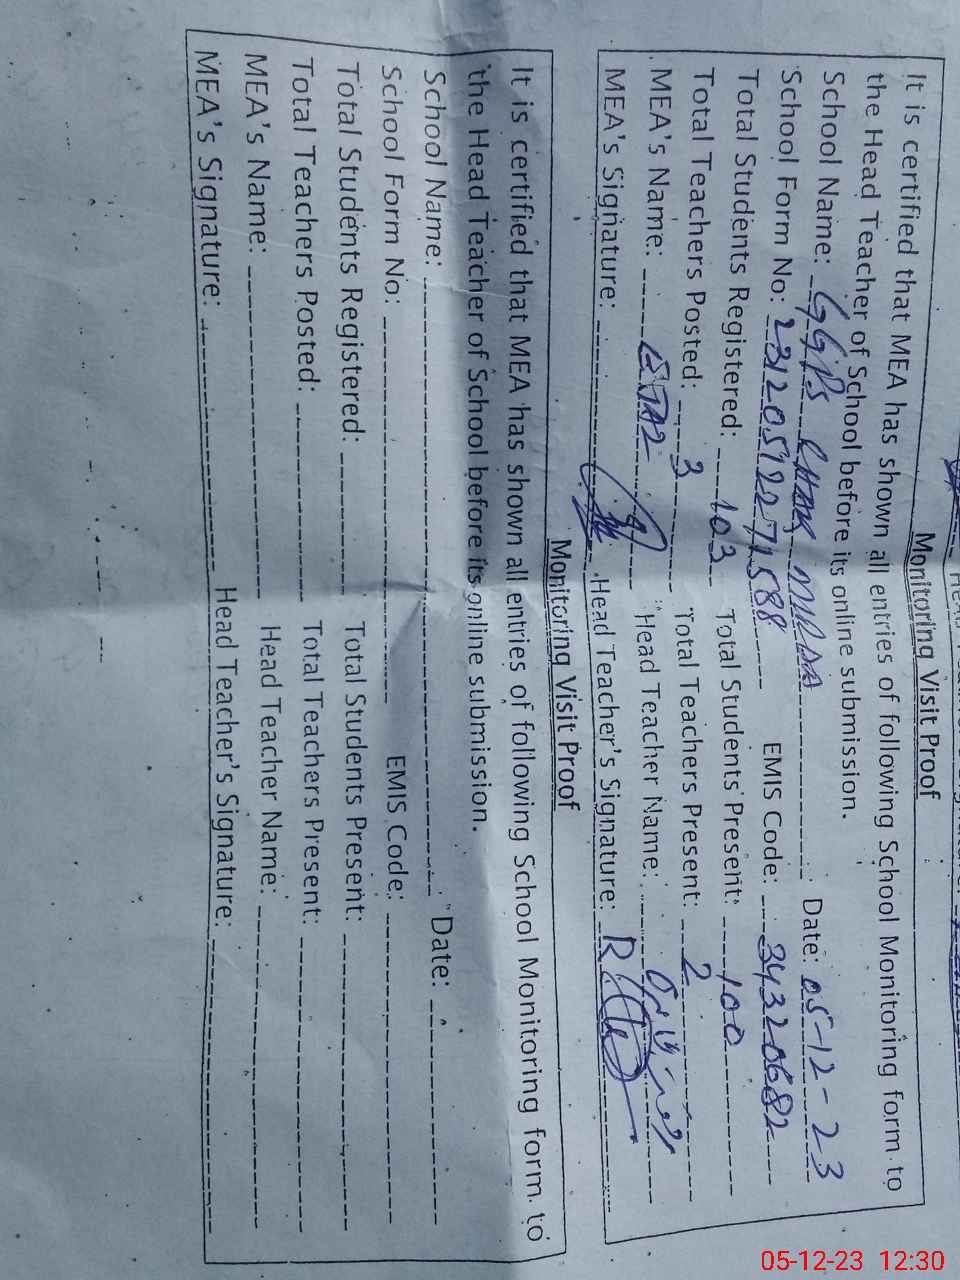 Monitoring Visit Proof
It is certified that MEA has shown all entries of following School Monitoring form to
the Head Teacher of School before its online submission.
School Name: GGPS CHAK MURAD Date: 05-12-23
School Form No: 23120512271588 EMIS Code: 34320682
Total Students Registered: 103 Total Students Present: 100
Total Teachers Posted: 3 Total Teachers Present: 2
MEA's Name: Head Teacher Name:
MEA's Signature: Head Teacher's Signature:
Monitoring Visit Proof
It is certified that MEA has shown all entries of following School Monitoring form to
the Head Teacher of School before its online submission.
School Name: Date:
School Form No: EMIS Code:
Total Students Registered: Total Students Present:
Total Teachers Posted: Total Teachers Present:
MEA's Name: Head Teacher Name:
MEA's Signature: Head Teacher's Signature:
05-12-23 12:30